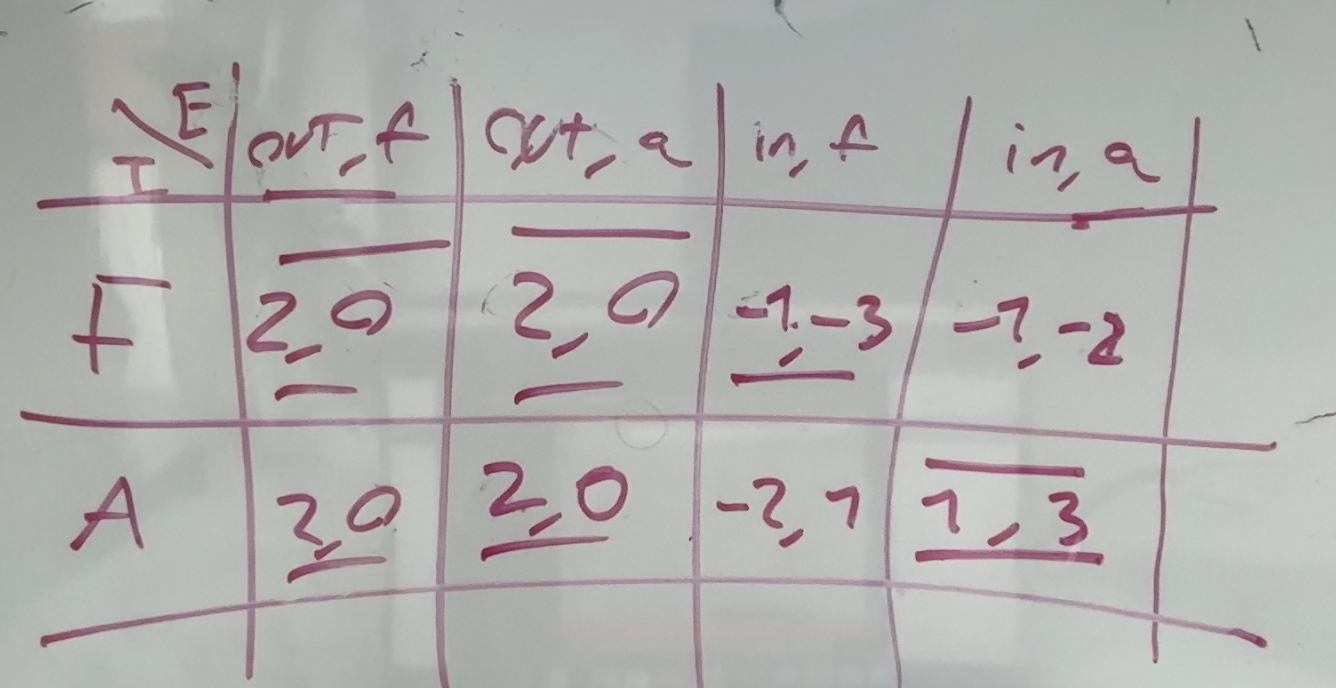 I\E out, f out, a in, f in, a
F 2,0 2,0 -1,-3 -1,-2
A 2,0 2,0 -2,1 1,3